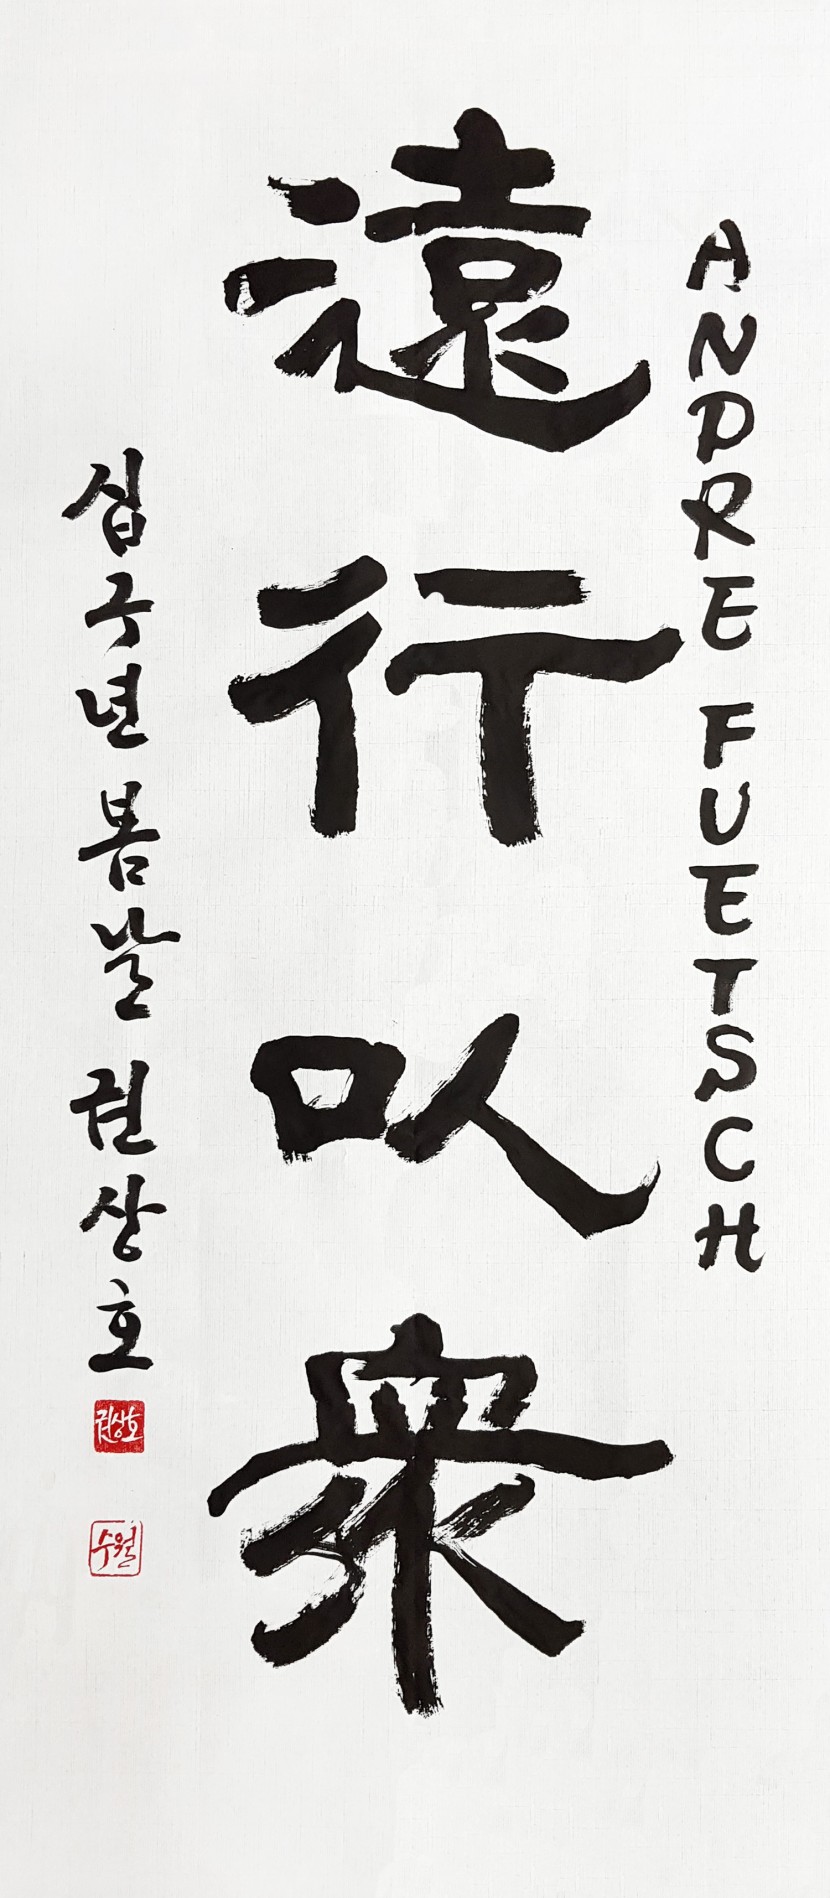 ANDRE FUETSCH
遠行以衆
십구년 봄날 권상호
권상호
수월